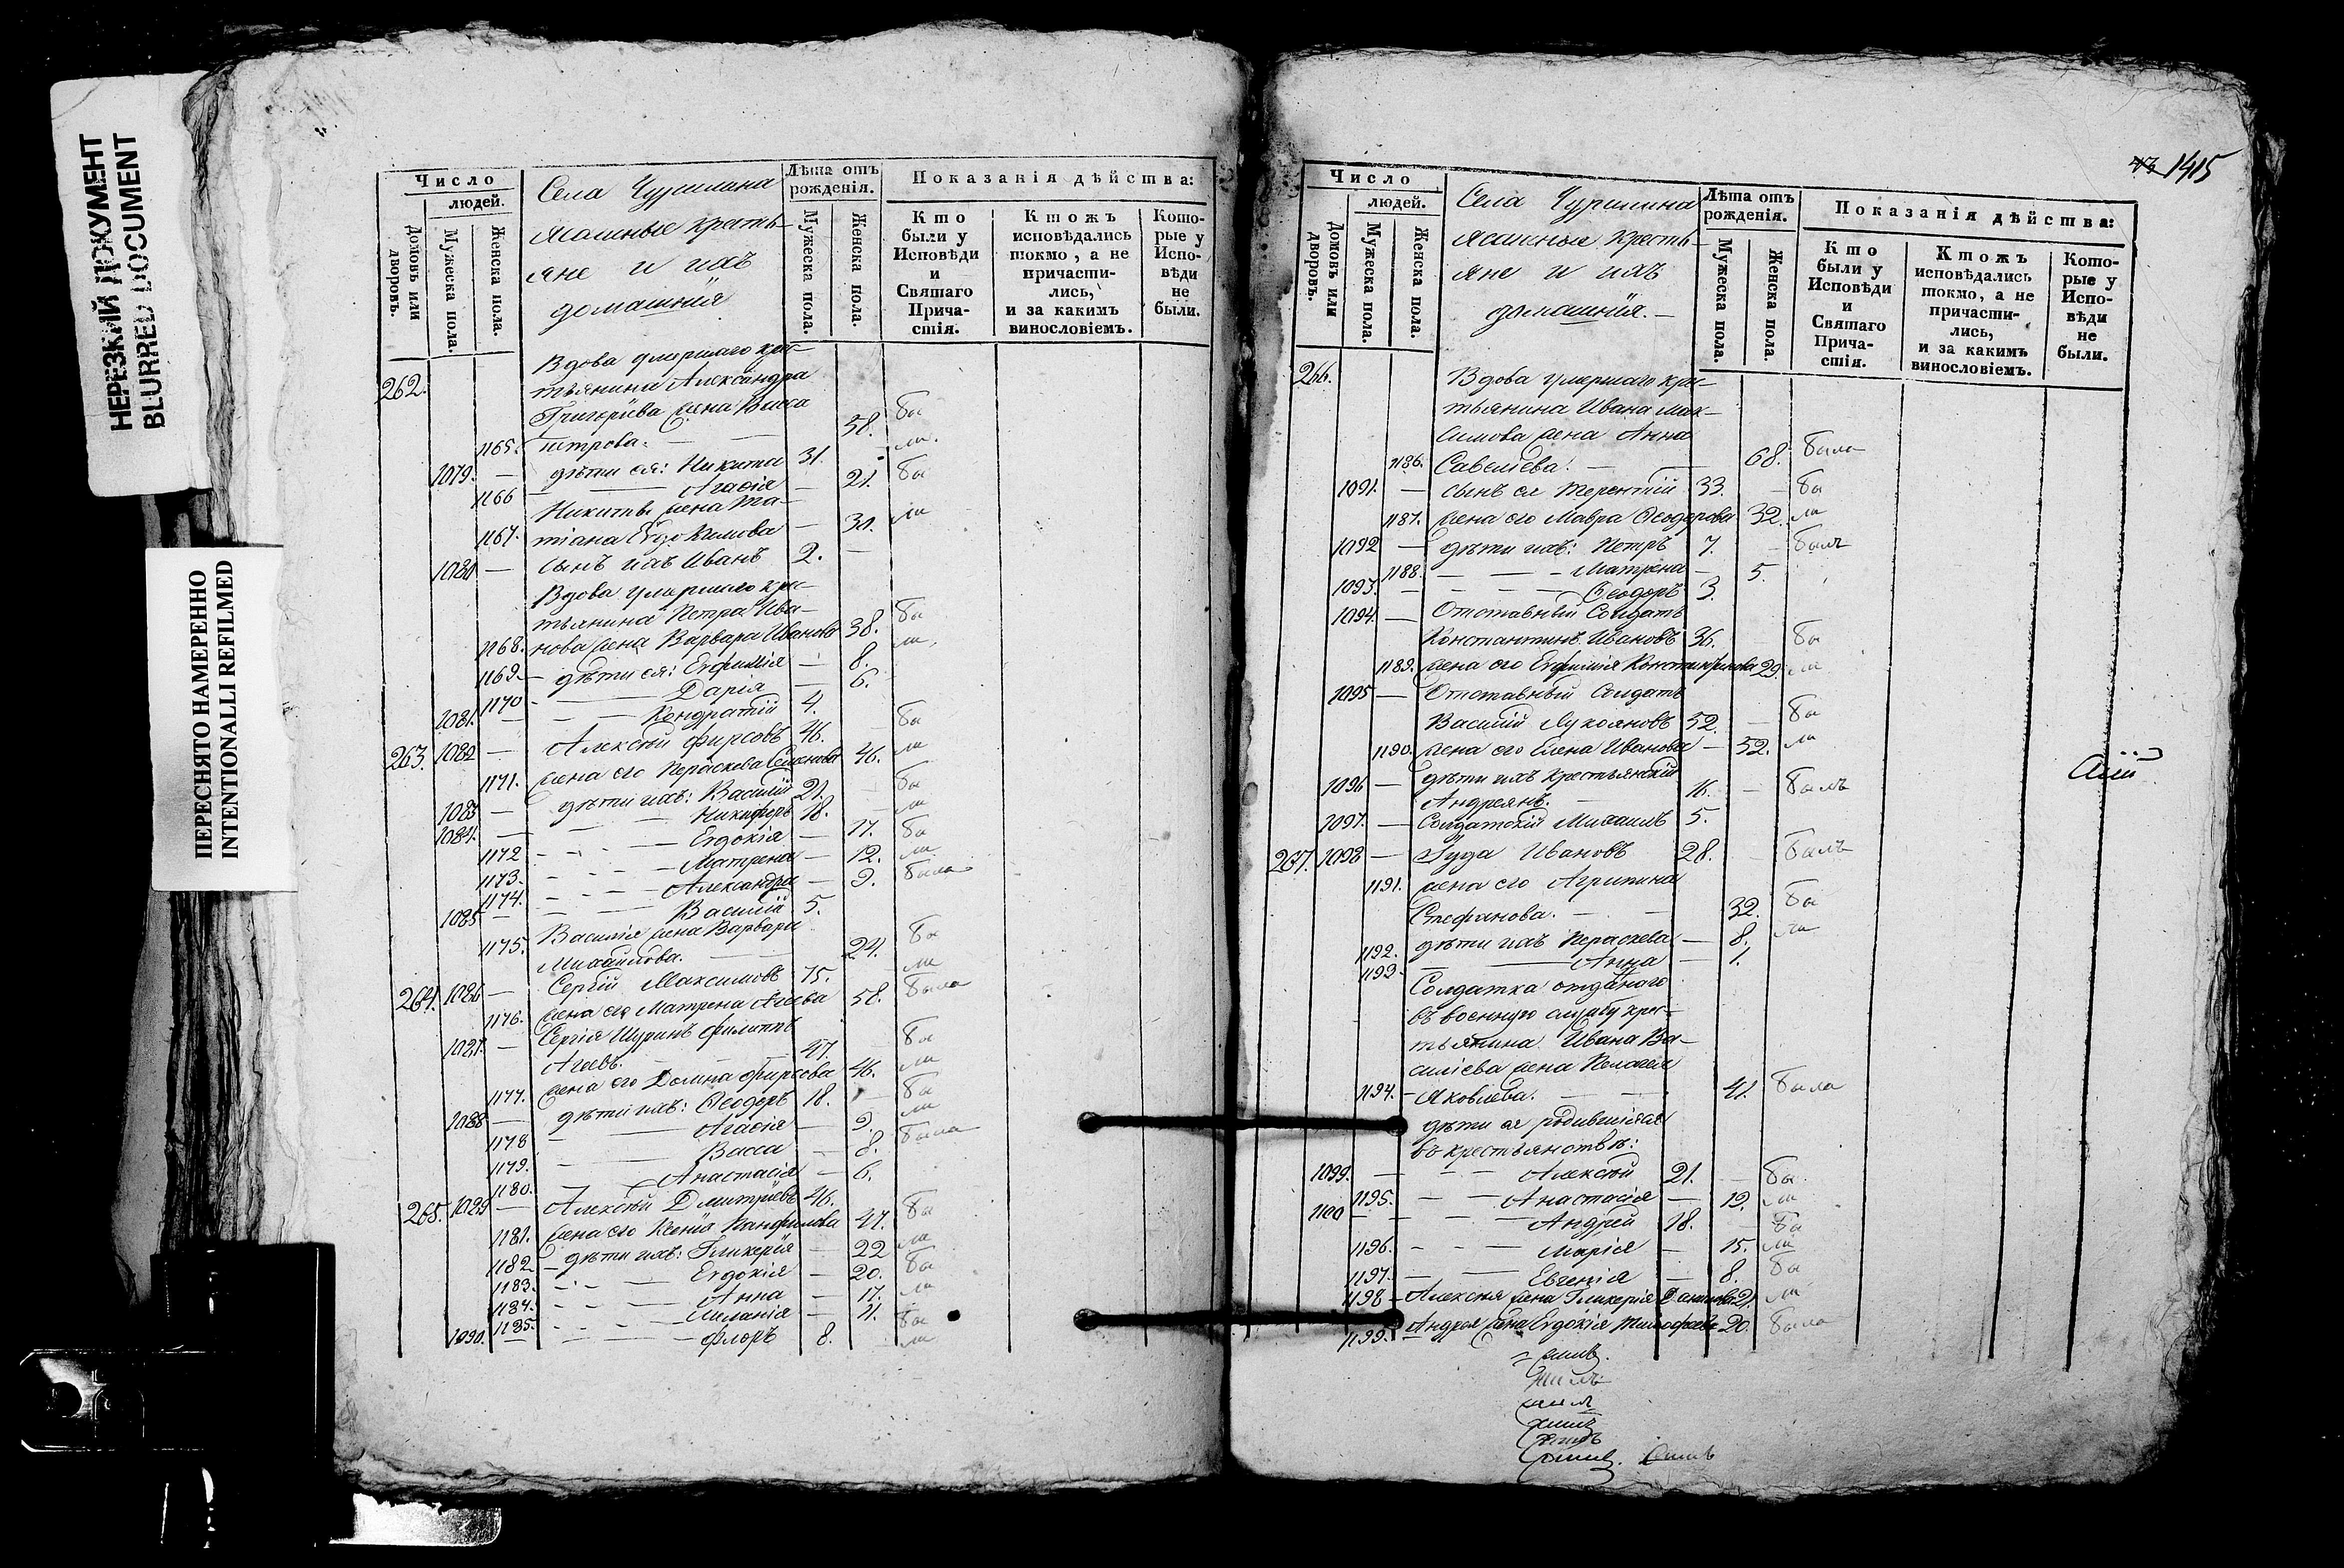 НЕРЕЗКИЙ ДОКУМЕНТ
BLURRED DOCUMENT
ПЕРЕСНЯТО НАМЕРЕННО
INTENTIONALLI REFILMED
Число
людей.
Домовъ или дворовъ.
Мужеска пола.
Женска пола.
Села Чурилина
ясашные кресть-
яне и ихъ
домашнія
Лѣта отъ рожденія.
Мужеска пола.
Женска пола.
Показанія дѣйства:
Кто были у Исповѣди и Святаго Причастія.
Ктожъ исповѣдались токмо, а не причастились, и за какимъ винословіемъ.
Которые у Исповѣди не были.
262. Вдова умершаго крес-
тьянина Александра
Григорьева жена Васса
1165. Петрова. 58. бы
1079. — дѣти ея: Никита 31. ли
1166 — Агафія — 21. бы
Никиты жена Та-
1167. тіана Евдокимова — 31. ли
1080 — сынъ ихъ Иванъ 2. —
Вдова умершаго крес-
тьянина Петра Ива-
1168. нова жена Варвара Иванова 38. бы
1169. — дѣти ея: Евфимія — 8. ли
1170 — Дарія — 6.
1081. — Кондратій 4.
263. 1082 — Алексѣй Фирсовъ 46. — бы
1171. жена его Пераскева Семенова 46. ли
1083 — дѣти ихъ: Василій 21. — бы
1084. — Никифоръ 18. — ли
1172 — Евдокія — 17. бы
1173. — Матрена — 12. ли
1174. — Александра — 9. была
1085 — Василій 5.
Василія жена Варвара
1175. Михайлова. — 24. бы
264. 1086 — Сергій Максимовъ 75. ли
1176. жена его Матрена Агѣева 58. была
1087. — Сергія Шуринъ Филиппъ
Агѣевъ. — 47. — бы
1177. жена его Домна Фирсова 46. ли
1088 — дѣти ихъ: Ѳеодоръ 18. — бы
1178 — Агафія — 9. ли
1179. — Васса — 8. была
1180. — Анастасія — 6.
265. 1089 — Алексѣй Дмитріевъ 46.
1181. жена его Ксенія Панфилова 47. бы
1182 — дѣти ихъ: Гликерія — 22 ли
1183. — Евдокія — 20. бы
1184. — Анна — 17. ли
1185. — Меланія — 11. бы
1090. — Флоръ 8. — ли
1415
Число
людей.
Домовъ или дворовъ.
Мужеска пола.
Женска пола.
Села Чурилина
ясашные кресть-
яне и ихъ
домашнія. —
Лѣта отъ рожденія.
Мужеска пола.
Женска пола.
Показанія дѣйства:
Кто были у Исповѣди и Святаго Причастія.
Ктожъ исповѣдались токмо, а не причастились, и за какимъ винословіемъ.
Которые у Исповѣди не были.
266. Вдова умершаго крес-
тьянина Ивана Мак-
симова жена Анна
1186. Савельева. — 68. была
1091. — сынъ ея Терентій 33. — бы
1187. жена его Мавра Ѳеодорова 32. ли
1092 — дѣти ихъ: Петръ 7. — былъ
1188. — Матрена — 5.
1093. — Ѳеодоръ 3.
1094. — Отставный Солдатъ
Константинъ Ивановъ 36. — бы
1189. жена его Евфимія 29. ли
1095 — Отставный Солдатъ
Василій Лукояновъ 52. — бы
1190. жена его Елена Иванова — 52. ли
1096 — дѣти ихъ крестьянскій
Андреянъ. 16. — былъ
1097. — Солдатскій Михаилъ 5.
267. 1098 — Іуда Ивановъ 28. — былъ
1191. жена его Агрипина
Стефанова. — 32. бы
1192. дѣти ихъ Пераскева — 8. ли
1193 — Анна — 1.
Солдатка отданаго
въ военную службу крес-
тьянина Ивана Ва-
силіева жена Пелагея
1194. — Яковлева. — 41. была
дѣти ея родившіяся
въ крестьянствѣ:
1099. — Алексѣй 21. — бы
1195. — Анастасія — 19. ли
1100 — Андрей 18. — бы
1196. — Марія — 15. ли
1197. — Евгенія — 8. бы
1198 — Алексѣя жена Гликерія Данилова 21. ли
1199. — Андрея жена Евдокія Тимофеева 20. была